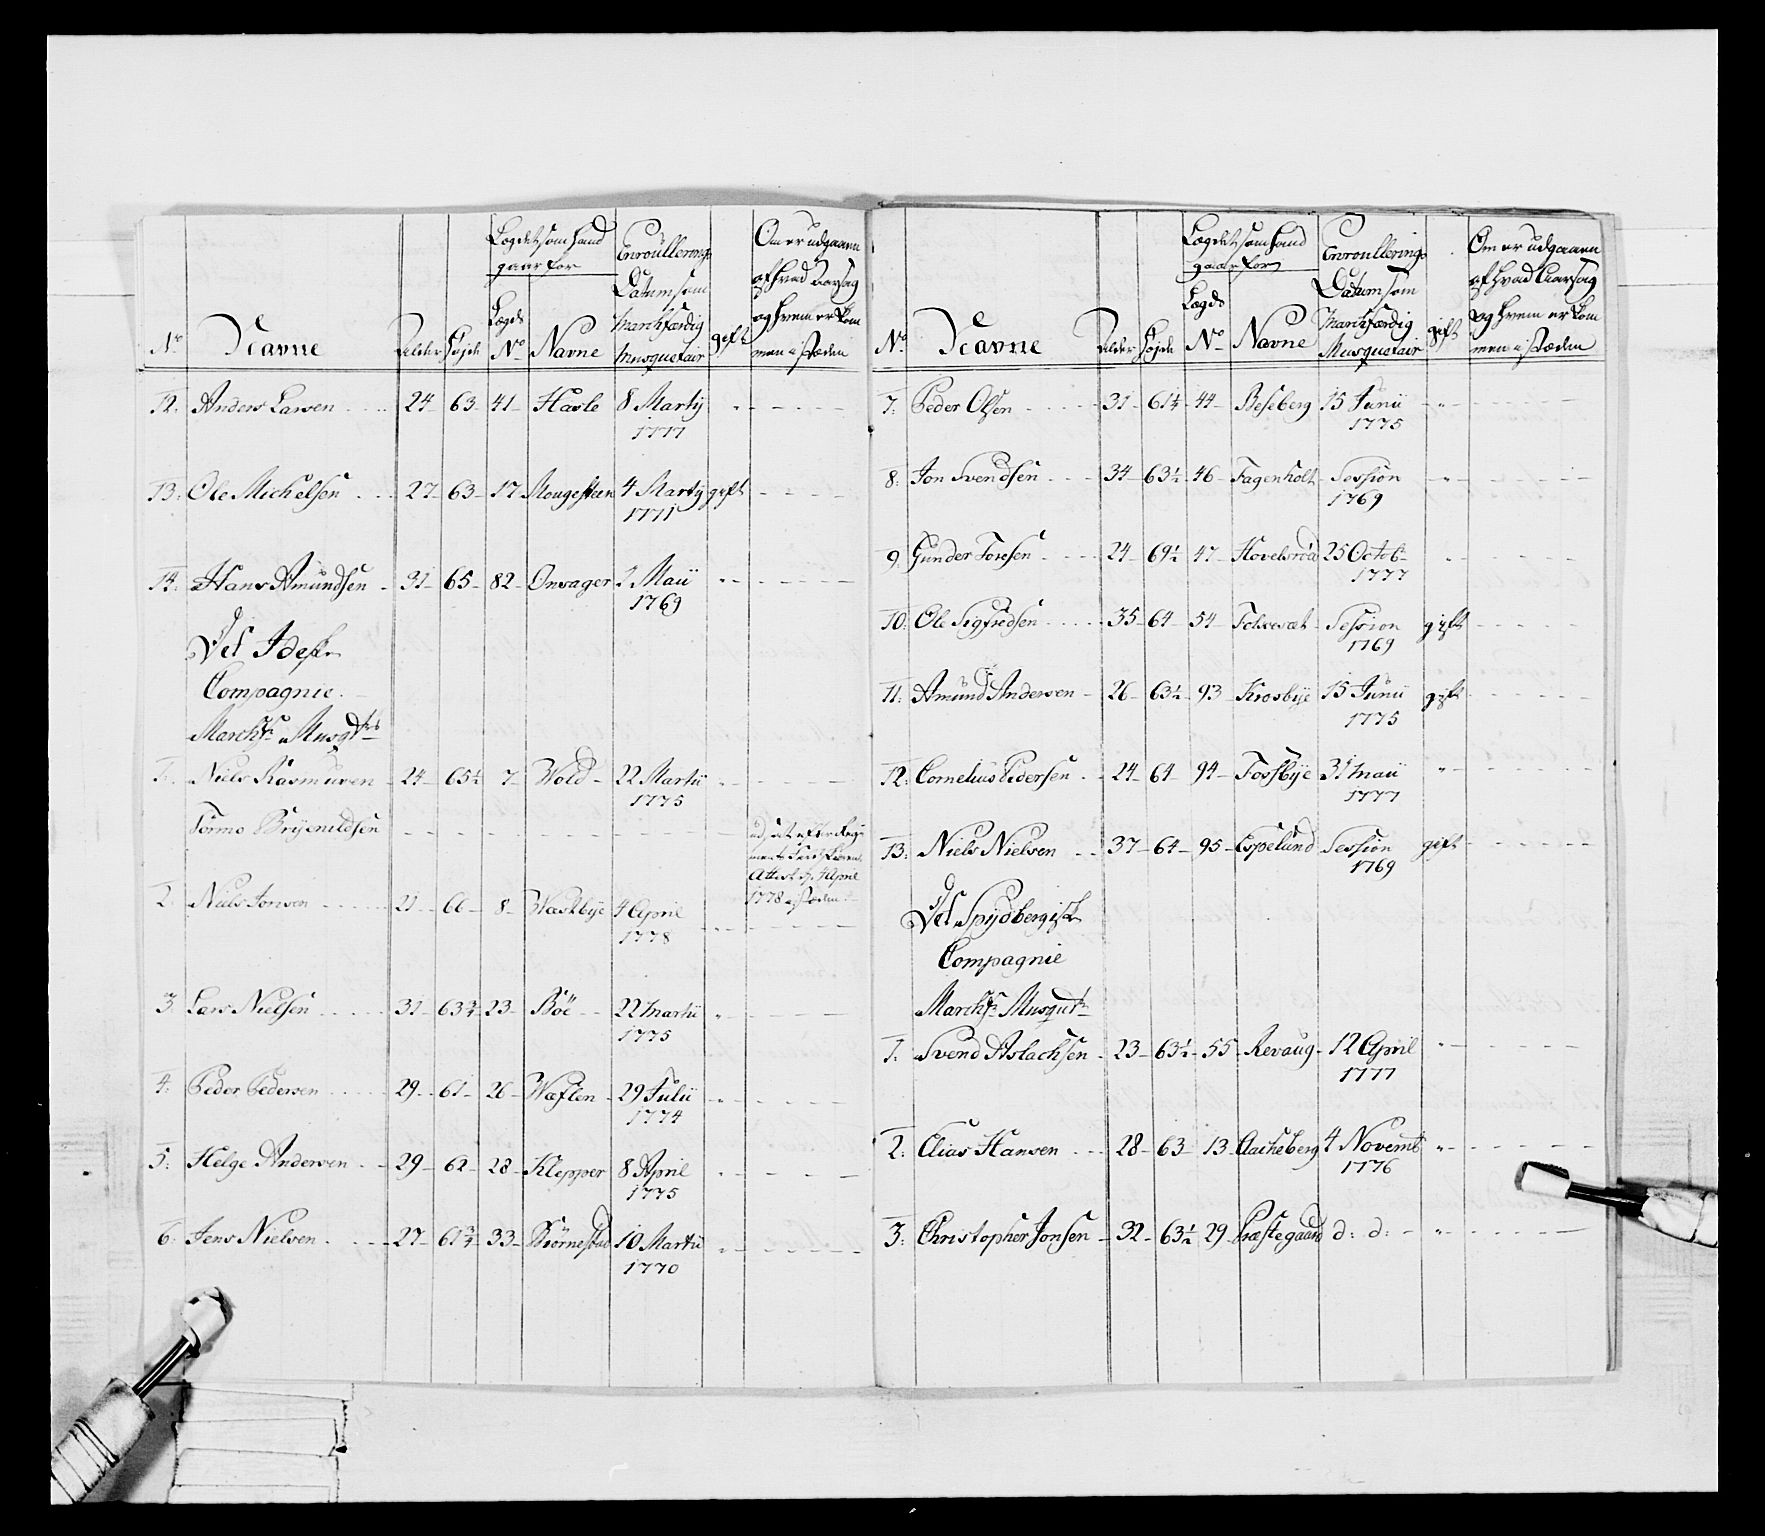 Lægdet som hand
gaar for
Enroullerings
Datum som
Marchfærdig
Musquetair
Om er udgaaen
af hvad Aarsag
og hvem er kom
men i stæden
No Navne Alder Højde Lægds No Navne gift
12. Anders Larsen 24 63 41 Hasle 8 Martij
1777
13. Ole Michelsen 27 63 17 Mougesteen 4 Martij gift
1771
14. Hans Amundsen 31 65 82 Onsager 2 Maii
1769
Ved Idesk
Compagnie.
Marchf. Musqt
1. Niels Rasmusen 24 65½ 7 Wold 22 Martii
1775
Tormo Brijenildsen
1778 i stæden
2. Niels Jonsen 21 66 8 Wastbije 4 April
1778
3 Lars Nielsen 31 63¾ 23 Böe 22 Martii
1775
4. Peder Pedersen 29 61 26 Wæflen 29 Julii
1774
5. Helge Andersen 29 62 28 Klepper 8 April
1775
6. Jens Nielsen 27 61¾ 33 Biörnestad 10 Martii
1770
Lægdet som hand
gaar for
Enroullerings
Datum som
Marchfærdig
Musquetair
Om er udgaaen
af hvad Aarsag
og hvem er kom
men i stæden
No Navne Alder Højde Lægds No Navne gift
7. Peder Olsen 31 61¼ 44 Beseberg 15 Junii
1775
8. Jon Svendsen 34 63½ 46 Fagerholt Session
1769
9. Gunder Toresen 24 69½ 47 Hovelsröd 25 Octob
1777
10. Ole Sigfredsen 35 64 54 Tolvesæt Session gift
1769
11. Amund Andersen 26 63½ 93 Krosbije 15 Junii gift
1775
12. Cornelius Pedersen 24 64 94 Fossbije 31 Maii
1777
13. Niels Nielsen 37 64 95 Espelund Session gift
1769
Ved Spijdbergisk
Compagnie
Marchf. Musqut
1. Svend Aslachsen 23 63½ 55 Revaug 12 April
1777
2. Elias Hansen 28 63 13 Aacheberg 4 Novemb
1776
3. Christopher Jonsen 32 63½ 29 Præstegaard d: d: